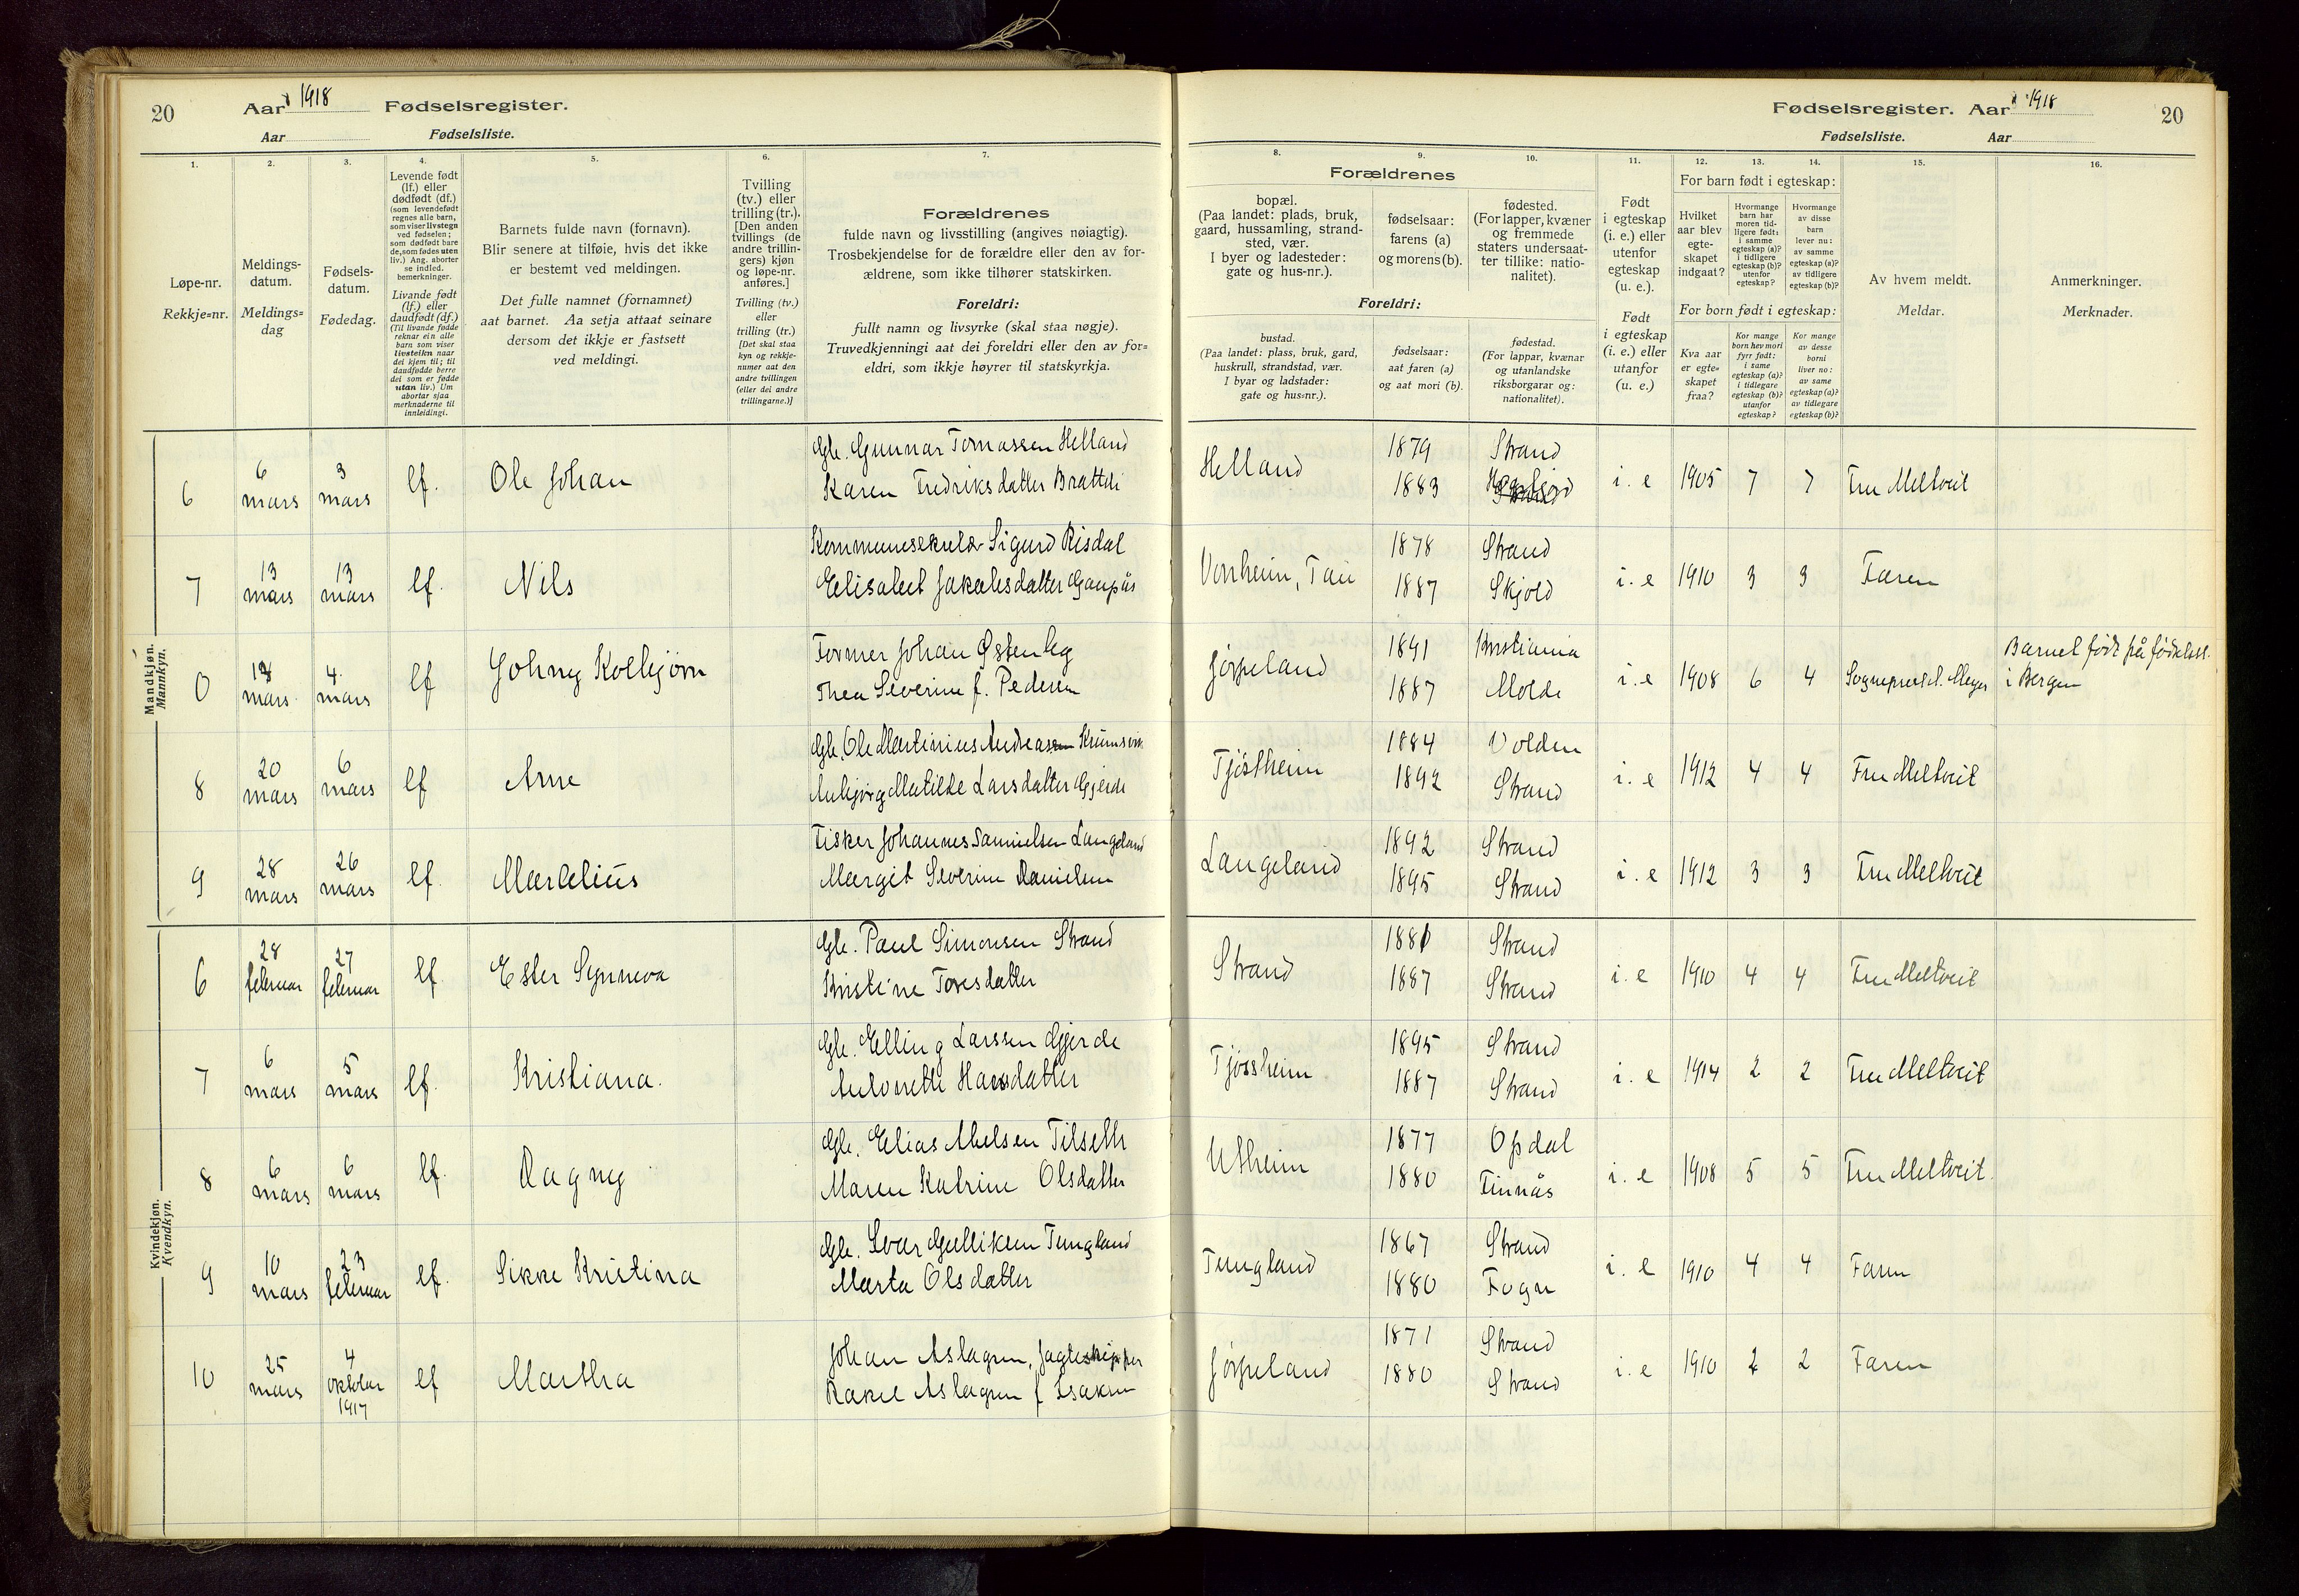 20
Aar 1918 Fødselsregister.
Aar Fødselsliste.
1.
2.
3.
4.
5.
6.
7.
Løpe-nr.
Rekkje=nr.
Meldings-
datum.
Meldings=
dag
Fødsels-
datum.
Fødedag.
Levende født
(lf.) eller
dødfødt (df.)
(som levendefødt
regnes alle barn,
som viser livstegn
ved fødselen;
som dødfødt bare
de, som fødes uten
liv.) Ang. aborter
se indled.
bemerkninger.
Livande født
(lf.) eller
daudfødt (df.)
(Til livande fødde
reknar ein alle
barn som viser
livsteikn naar
dei kjem til; til
daudfødde berre
dei som er fødde
utan liv.) Um
abortar sjaa
merknaderne til
innleidingi.
Barnets fulde navn (fornavn).
Blir senere at tilføie, hvis det ikke
er bestemt ved meldingen.
Det fulle namnet (fornamnet)
aat barnet. Aa setja attaat seinare
dersom det ikkje er fastsett
ved meldingi.
Tvilling
(tv.) eller
trilling (tr.).
[Den anden
tvillings (de
andre trillin-
gers) kjøn
og løpe-nr.
anføres.]
Tvilling (tv.)
eller
trilling (tr.)
[Det skal staa
kyn og rekkje-
numer aat den
andre tvillingen
(eller dei andre
trillingarne.)]
Forældrenes
fulde navn og livsstilling (angives nøiagtig).
Trosbekjendelse for de forældre eller den av for-
ældrene, som ikke tilhører statskirken.
Foreldri:
fullt namn og livsyrke (skal staa nøgje).
Truvedkjenningi aat dei foreldri eller den av for=
eldri, som ikkje høyrer til statskyrkja.
Fødselsregister. Aar 1918
20
Fødselsliste. Aar
8.
9.
10.
11.
12.
13.
14.
15.
16.
Forældrenes
bopæl.
(Paa landet: plads, bruk,
gaard, hussamling, strand-
sted, vær.
I byer og ladesteder:
gate og hus-nr.).
fødselsaar:
farens (a)
og morens (b).
fødested.
(For lapper, kvæner
og fremmede
staters undersaat-
ter tillike: natio-
nalitet).
Foreldri:
bustad.
(Paa landet: plass, bruk, gard,
huskrull, strandstad, vær.
I byar og ladstader:
gate og hus=nr.).
fødselsaar:
aat faren (a)
og aat mori (b).
fødestad.
(For lappar, kvænar
og utanlandske
riksborgarar og:
nationalitet).
Født
i egteskap
(i. e.) eller
utenfor
egteskap
(u. e.).
Født
i egteskap
(i. e.) eller
utanfor
(u. e.)
For barn født i egteskap:
Hvilket
aar blev
egte-
skapet
indgaat?
Hvormange
barn har
moren tid-
ligere født:
i samme
egteskap (a)?
i tidligere
egteskap (b)?
utenfor
egteskap?
Hvormange
av disse
barn
lever nu:
av samme
egteskap (a)?
av tidligere
egteskap (b)?
For born født i egteskap:
Kva aar
er egte=
skapet
fraa?
Kor mange
born hev mori
fyrr født:
i same
egteskap (a)?
i tidlegare
egteskap (b)?
utanfor
egteskap?
Kor mange
av desse
borni
liver no:
av same
egteskap (a)?
av tidlegare
egteskap (b)?
Av hvem meldt.
Meldar.
Anmerkninger.
Merknader.
Mandkjøn.
Mannkyn.
6 6 mars 3 mars lf. Ole Johan Gbr. Gunnar Tomassen Helland
Karen Fredriksdatter Brattli
Helland 1879 Strand
1883 Høgsfjord
i. e 1905 7 7 Fru Meltveit
7 13 mars 13 mars lf. Nils Kommunesekretær Sigurd Risdal
Elisabet Jakobsdatter Gaupås
Vonheim, Tau 1878 Strand
1887 Skjold
i. e 1910 3 3 Faren
0 mars 4. mars lf Johny Kolbjørn Former Johan Østenlog
Thea Severine f. Pedersen
Jørpeland 1891 Kristiania
1887 Molde
i. e 1908 6 4 Sogneprest Meyer
Barnet født på fødselsst.
i Bergen
8 20 mars 6 mars lf Arne Gbr. Ole Martinius Andreassen Krumsvik
Anbjørg Matilde Larsdatter Gjerde
Tjøstheim 1884 Volden
1892 Strand
i. e 1912 4 4 Fru Meltveit
9 28 mars 26 mars lf. Marselius Fisker Johannes Samuelsen Langeland
Margit Severine Danielsen
Langeland 1892 Strand
1895 Strand
i. e 1912 3 3 Fru Meltveit
Kvindekjøn.
Kvendkyn.
6 28 februar 27 februar lf Ester Synneva Gbr. Paul Simonsen Strand
Kristine Toresdatter
Strand 1881 Strand
1887 Strand
i. e 1910 4 4 Fru Meltveit
7 6 mars 5 mars lf. Kristiana. Gbr. Elling Larssen Gjerde
Antonette Hansdatter
Tjøssheim 1895 Strand
1887 Strand
i. e 1914 2 2 Fru Meltveit
8 6 mars 6 mars lf. Ragny Gbr. Elias Abelsen Tilseth
Maren Katrine Olsdatter
Utheim 1877 Opdal
1880 Finnås
i. e 1908 5 5 Fru Meltveit.
9 10 mars 23 februar lf. Sikke Kristina Gbr. Ivar Gulliksen Tungland
Marta Olsdatter
Tungland 1867 Strand
1880 Fogn
i. e 1910 4 4 Faren
10 25 mars 4 oktober 1917 lf Martha Johan Aslagsen, Jagteskipper
Rakel Aslagsen f Isaksen
Jørpeland 1871 Strand
1880 Strand
i. e 1910 2 2 Faren